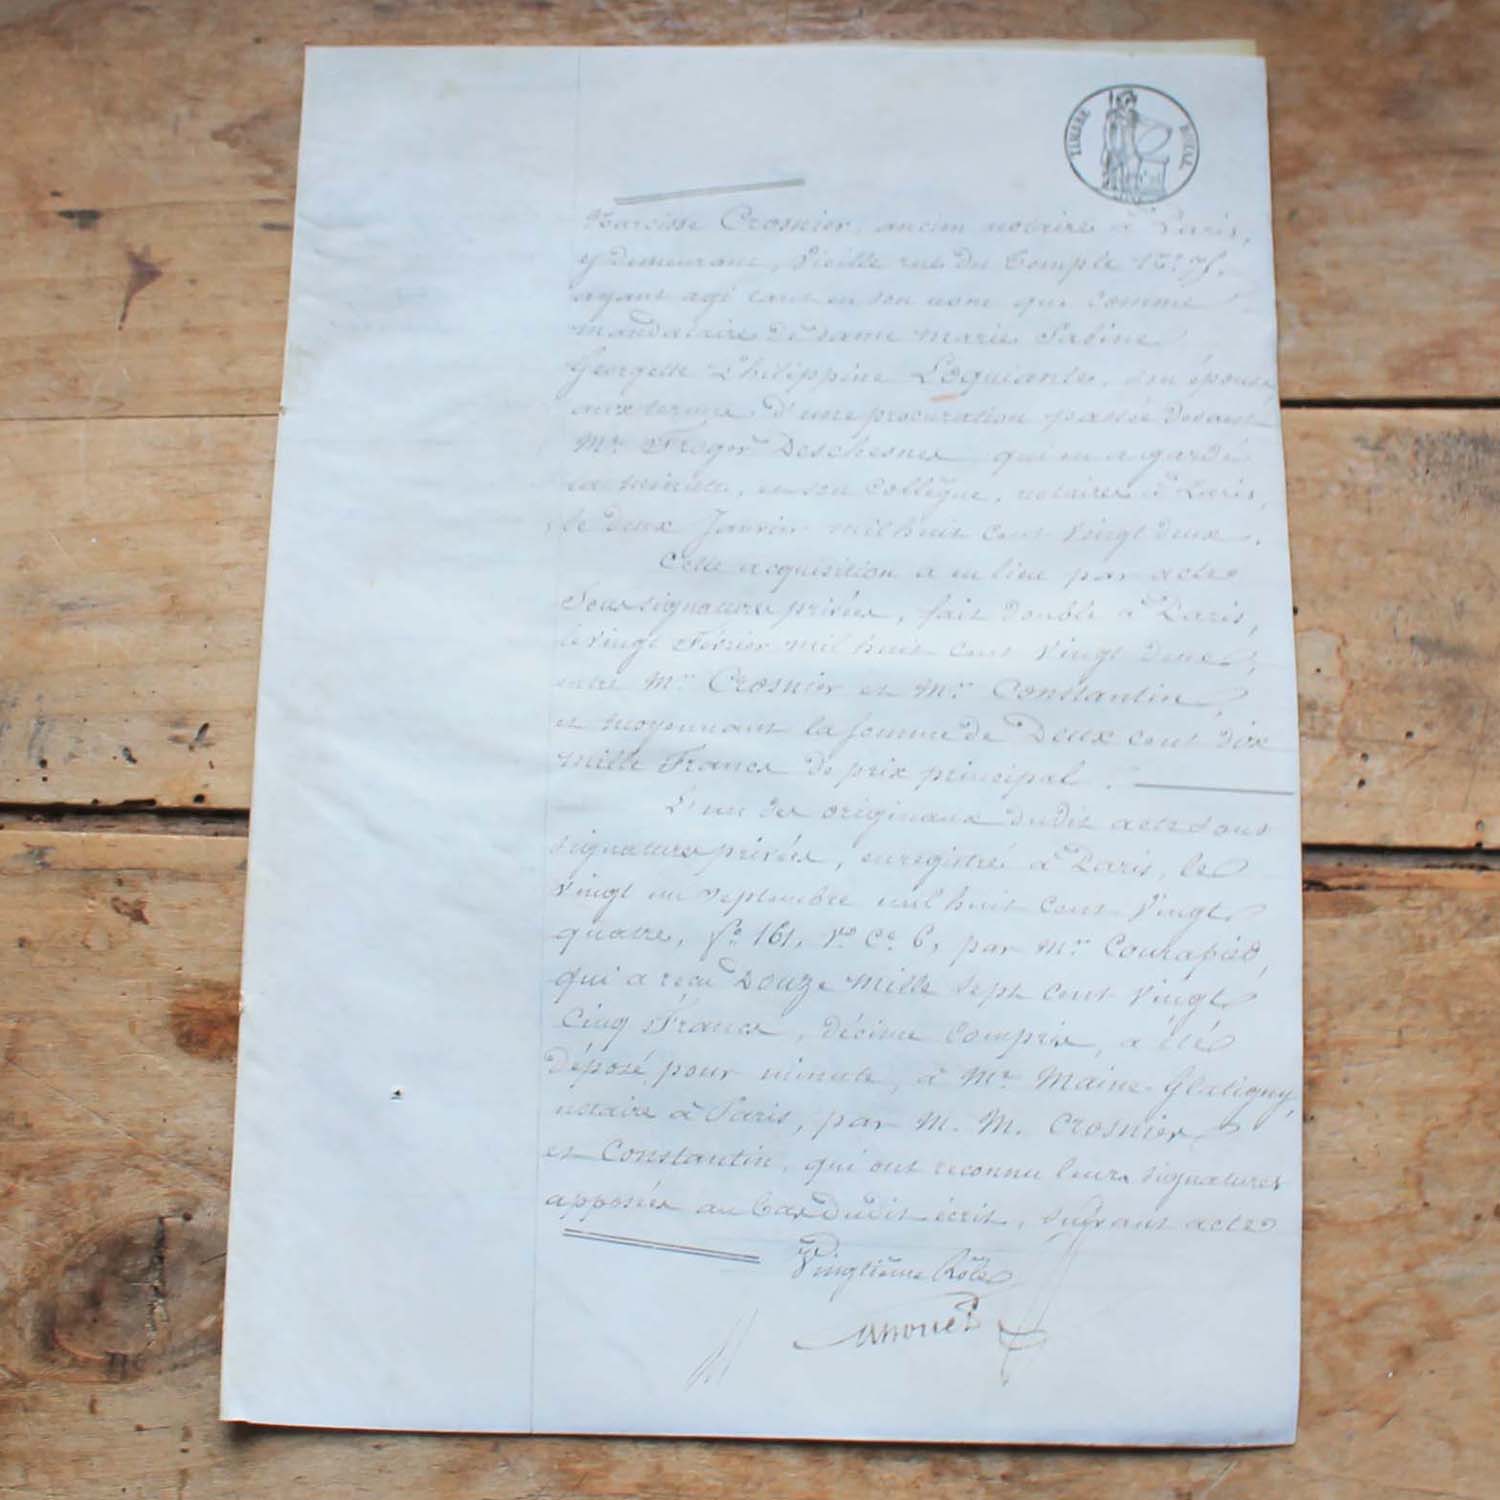 TIMBRE ROYAL
Narcisse Crosnier, ancien notaire à Paris,
y demeurant, Vieille rue du Temple No. 75,
ayant agi tant en son nom que comme
mandataire de dame Marie Sabine
Georgette Philippine Loquiante, son épouse,
aux termes d'une procuration passée devant
Me. Froger Deschesnes qui en a gardé
la minute, et son collègue, notaires à Paris,
le deux Janvier mil huit cent vingt deux.
Cette acquisition a eu lieu par acte
Sous signatures privées, fait double à Paris,
le vingt Février mil huit cent vingt deux,
entre Mr. Crosnier et Mr. Constantin,
et moyennant la somme de Deux cent dix
mille Francs de prix principal.
L'un des originaux dudit acte sous
signatures privées, enregistré à Paris, le
vingt un septembre mil huit cent vingt
quatre, fo. 161, Vo. Ce. 6, par Mr. Courapied,
qui a reçu Douze mille sept cent vingt
Cinq Francs, décime compris, a été
déposé pour minute, à Me. Maine-Glatigny,
notaire à Paris, par M. M. Crosnier
et Constantin, qui ont reconnu leurs signatures
apposées au bas dudit écrit, suivant acte
Vingtième Rôle